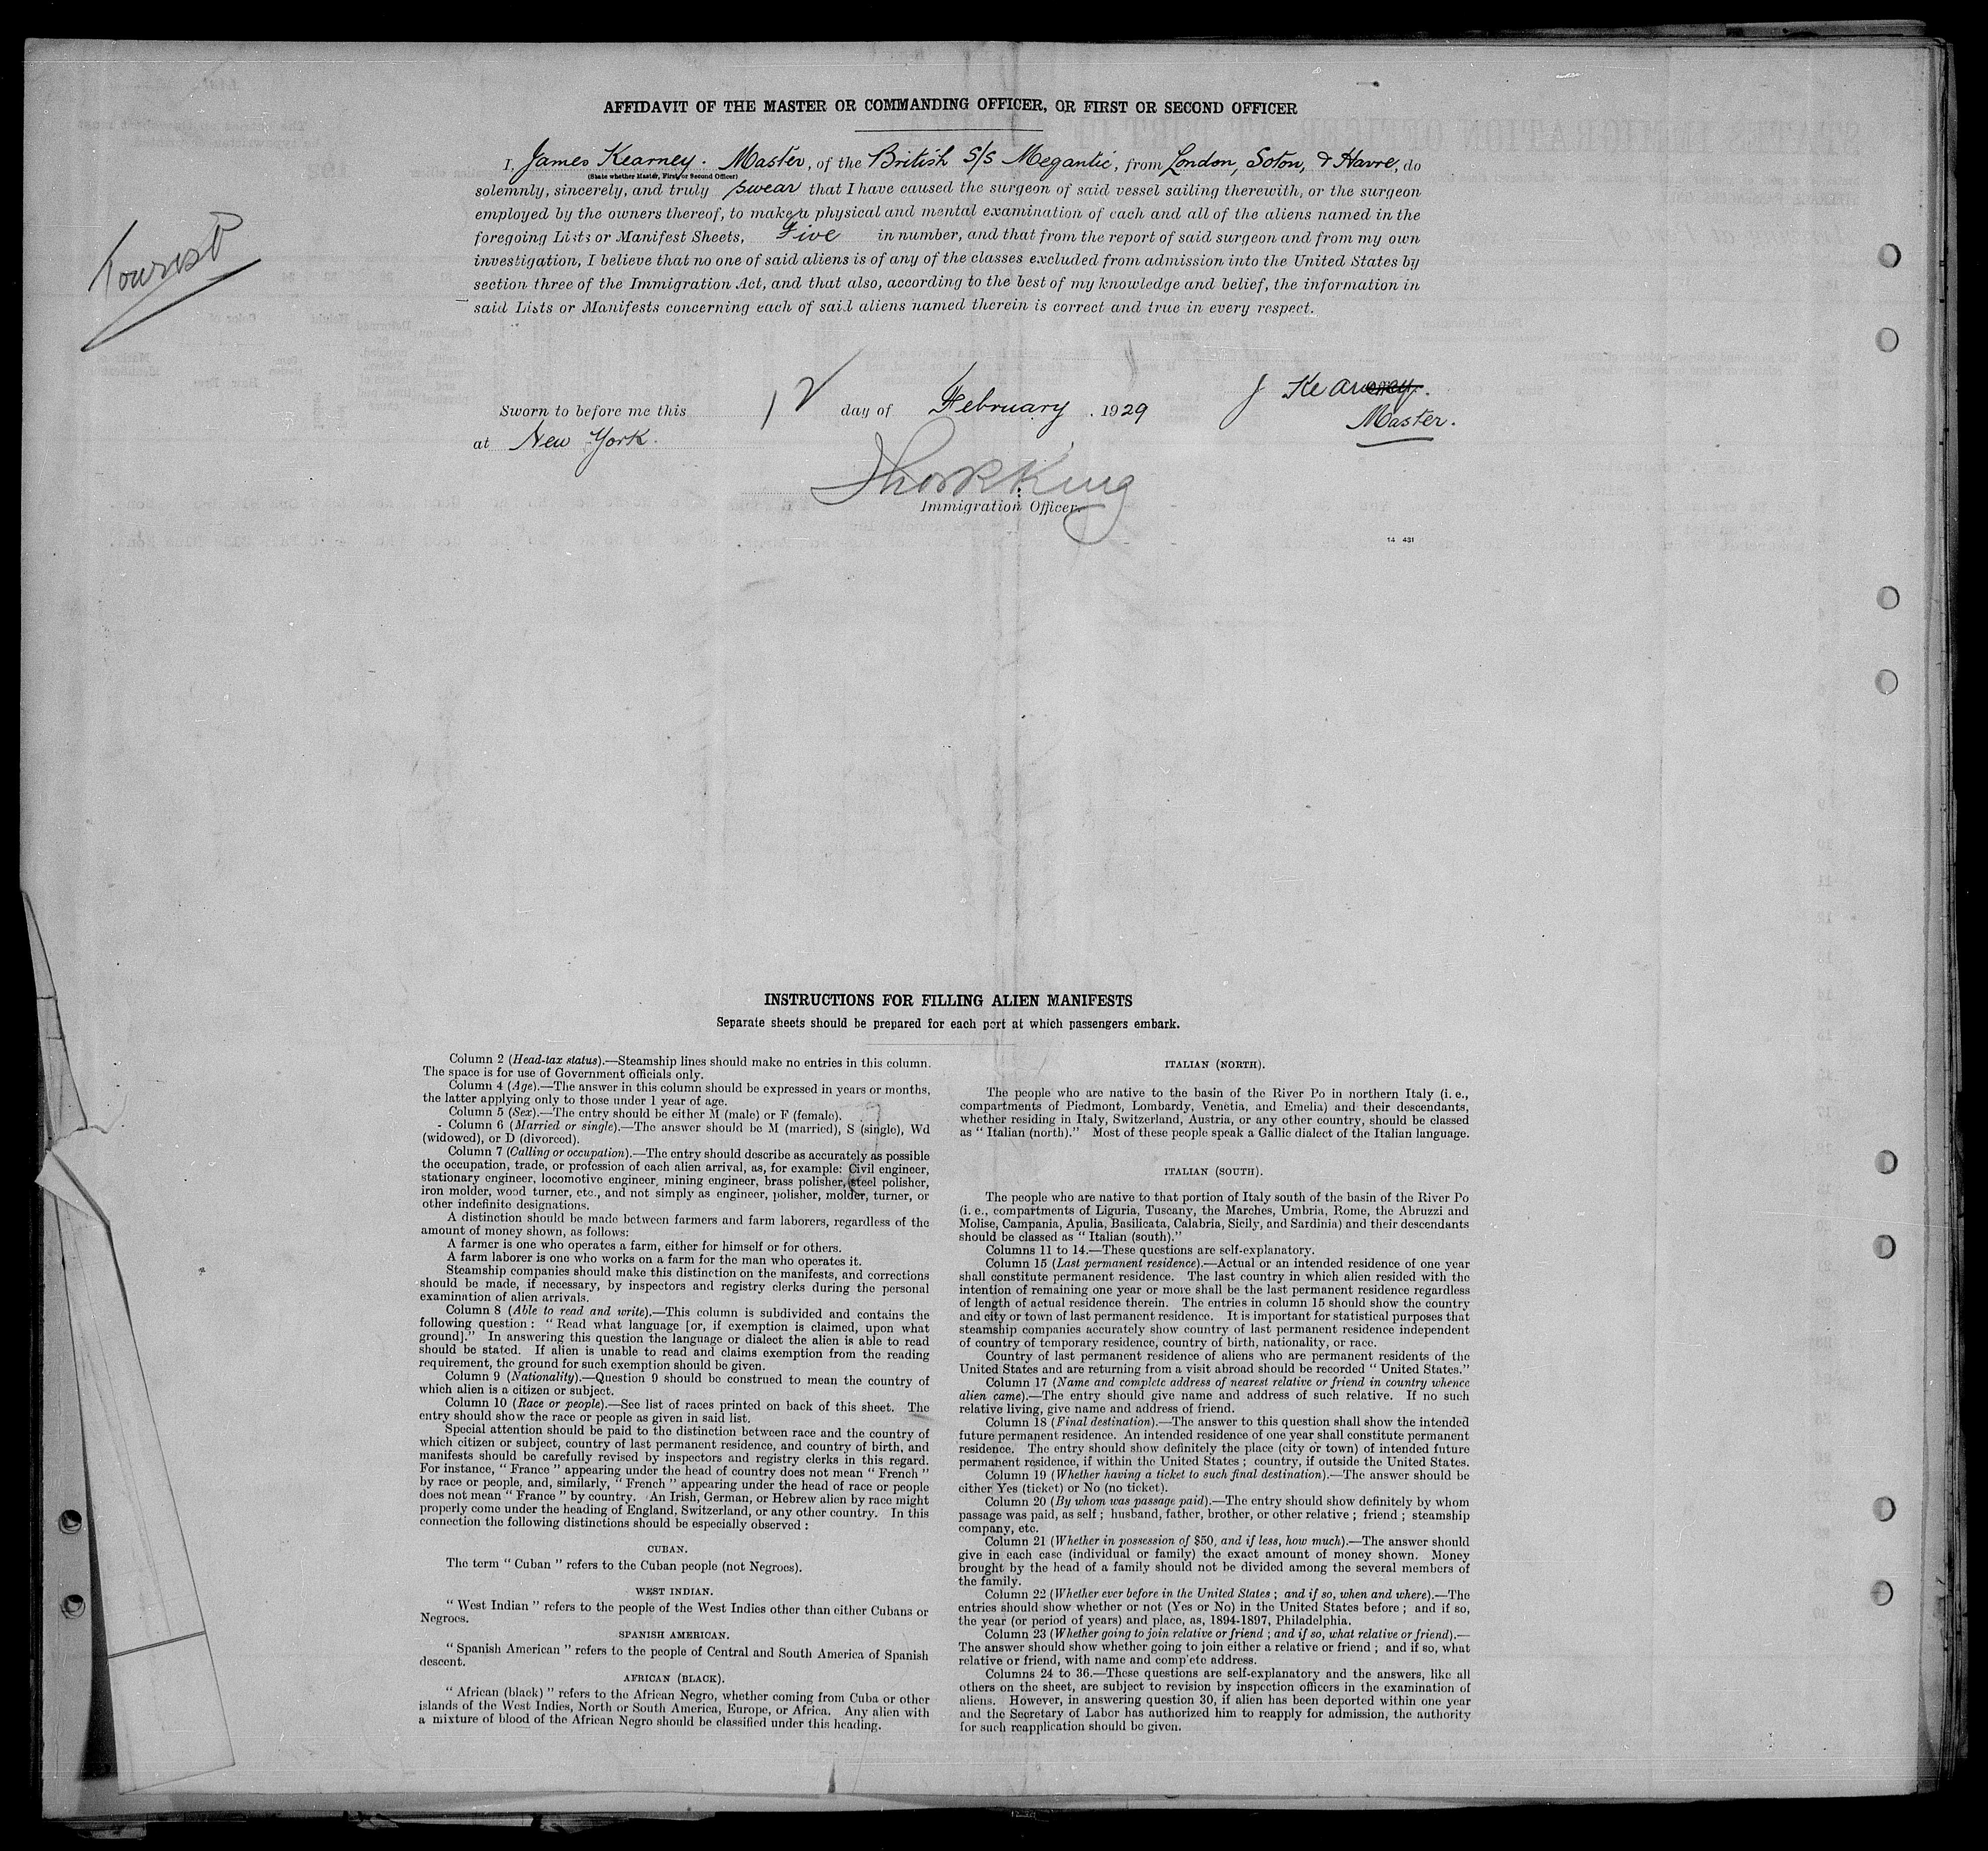 AFFIDAVIT OF THE MASTER OR COMMANDING OFFICER, OR FIRST OR SECOND OFFICER
I, James Kearney. Master, of the British S/S Megantic, from London, Soton, & Havre, do
(State whether Master, First, or Second Officer)
solemnly, sincerely, and truly swear that I have caused the surgeon of said vessel sailing therewith, or the surgeon
employed by the owners thereof, to make a physical and mental examination of each and all of the aliens named in the
foregoing Lists or Manifest Sheets, Five in number, and that from the report of said surgeon and from my own
investigation, I believe that no one of said aliens is of any of the classes excluded from admission into the United States by
section three of the Immigration Act, and that also, according to the best of my knowledge and belief, the information in
said Lists or Manifests concerning each of said aliens named therein is correct and true in every respect.
Tourist
J Kearney.
Master.
Sworn to before me this 12 day of February, 1929
at New York.
Immigration Officer.
14 431
INSTRUCTIONS FOR FILLING ALIEN MANIFESTS
Separate sheets should be prepared for each port at which passengers embark.
Column 2 (Head-tax status).—Steamship lines should make no entries in this column.
The space is for use of Government officials only.
Column 4 (Age).—The answer in this column should be expressed in years or months,
the latter applying only to those under 1 year of age.
Column 5 (Sex).—The entry should be either M (male) or F (female).
Column 6 (Married or single).—The answer should be M (married), S (single), Wd
(widowed), or D (divorced).
Column 7 (Calling or occupation).—The entry should describe as accurately as possible
the occupation, trade, or profession of each alien arrival, as, for example: Civil engineer,
stationary engineer, locomotive engineer, mining engineer, brass polisher, steel polisher,
iron molder, wood turner, etc., and not simply as engineer, polisher, molder, turner, or
other indefinite designations.
A distinction should be made between farmers and farm laborers, regardless of the
amount of money shown, as follows:
A farmer is one who operates a farm, either for himself or for others.
A farm laborer is one who works on a farm for the man who operates it.
Steamship companies should make this distinction on the manifests, and corrections
should be made, if necessary, by inspectors and registry clerks during the personal
examination of alien arrivals.
Column 8 (Able to read and write).—This column is subdivided and contains the
following question: "Read what language [or, if exemption is claimed, upon what
ground]." In answering this question the language or dialect the alien is able to read
should be stated. If alien is unable to read and claims exemption from the reading
requirement, the ground for such exemption should be given.
Column 9 (Nationality).—Question 9 should be construed to mean the country of
which alien is a citizen or subject.
Column 10 (Race or people).—See list of races printed on back of this sheet. The
entry should show the race or people as given in said list.
Special attention should be paid to the distinction between race and the country of
which citizen or subject, country of last permanent residence, and country of birth, and
manifests should be carefully revised by inspectors and registry clerks in this regard.
For instance, "France" appearing under the head of country does not mean "French"
by race or people, and, similarly, "French" appearing under the head of race or people
does not mean "France" by country. An Irish, German, or Hebrew alien by race might
properly come under the heading of England, Switzerland, or any other country. In this
connection the following distinctions should be especially observed:
CUBAN.
The term "Cuban" refers to the Cuban people (not Negroes).
WEST INDIAN.
"West Indian" refers to the people of the West Indies other than either Cubans or
Negroes.
SPANISH AMERICAN.
"Spanish American" refers to the people of Central and South America of Spanish
descent.
AFRICAN (BLACK).
"African (black)" refers to the African Negro, whether coming from Cuba or other
islands of the West Indies, North or South America, Europe, or Africa. Any alien with
a mixture of blood of the African Negro should be classified under this heading.
ITALIAN (NORTH).
The people who are native to the basin of the River Po in northern Italy (i. e.,
compartments of Piedmont, Lombardy, Venetia, and Emelia) and their descendants,
whether residing in Italy, Switzerland, Austria, or any other country, should be classed
as "Italian (north)." Most of these people speak a Gallic dialect of the Italian language.
ITALIAN (SOUTH).
The people who are native to that portion of Italy south of the basin of the River Po
(i. e., compartments of Liguria, Tuscany, the Marches, Umbria, Rome, the Abruzzi and
Molise, Campania, Apulia, Basilicata, Calabria, Sicily, and Sardinia) and their descendants
should be classed as "Italian (south)."
Columns 11 to 14.—These questions are self-explanatory.
Column 15 (Last permanent residence).—Actual or an intended residence of one year
shall constitute permanent residence. The last country in which alien resided with the
intention of remaining one year or more shall be the last permanent residence regardless
of length of actual residence therein. The entries in column 15 should show the country
and city or town of last permanent residence. It is important for statistical purposes that
steamship companies accurately show country of last permanent residence independent
of country of temporary residence, country of birth, nationality, or race.
Country of last permanent residence of aliens who are permanent residents of the
United States and are returning from a visit abroad should be recorded "United States."
Column 17 (Name and complete address of nearest relative or friend in country whence
alien came).—The entry should give name and address of such relative. If no such
relative living, give name and address of friend.
Column 18 (Final destination).—The answer to this question shall show the intended
future permanent residence. An intended residence of one year shall constitute permanent
residence. The entry should show definitely the place (city or town) of intended future
permanent residence, if within the United States; country, if outside the United States.
Column 19 (Whether having a ticket to such final destination).—The answer should be
either Yes (ticket) or No (no ticket).
Column 20 (By whom was passage paid).—The entry should show definitely by whom
passage was paid, as self; husband, father, brother, or other relative; friend; steamship
company, etc.
Column 21 (Whether in possession of $50, and if less, how much).—The answer should
give in each case (individual or family) the exact amount of money shown. Money
brought by the head of a family should not be divided among the several members of
the family.
Column 22 (Whether ever before in the United States; and if so, when and where).—The
entries should show whether or not (Yes or No) in the United States before; and if so,
the year (or period of years) and place, as, 1894-1897, Philadelphia.
Column 23 (Whether going to join relative or friend; and if so, what relative or friend).—
The answer should show whether going to join either a relative or friend; and if so, what
relative or friend, with name and complete address.
Columns 24 to 36.—These questions are self-explanatory and the answers, like all
others on the sheet, are subject to revision by inspection officers in the examination of
aliens. However, in answering question 30, if alien has been deported within one year
and the Secretary of Labor has authorized him to reapply for admission, the authority
for such reapplication should be given.